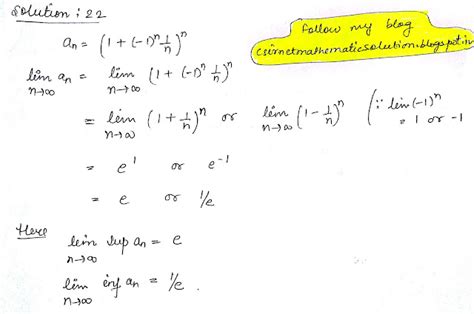 Solution : 22
Follow my blog
csirnetmathematicssolution.blogspot.in
a_n = (1 + (-1)^n 1/n)^n
lim n→∞ a_n = lim n→∞ (1 + (-1)^n 1/n)^n
= lim n→∞ (1 + 1/n)^n or lim n→∞ (1 - 1/n)^n (∵ lim (-1)^n = 1 or -1
= e^1 or e^-1
= e or 1/e
Here
lim n→∞ sup a_n = e
lim n→∞ inf a_n = 1/e .